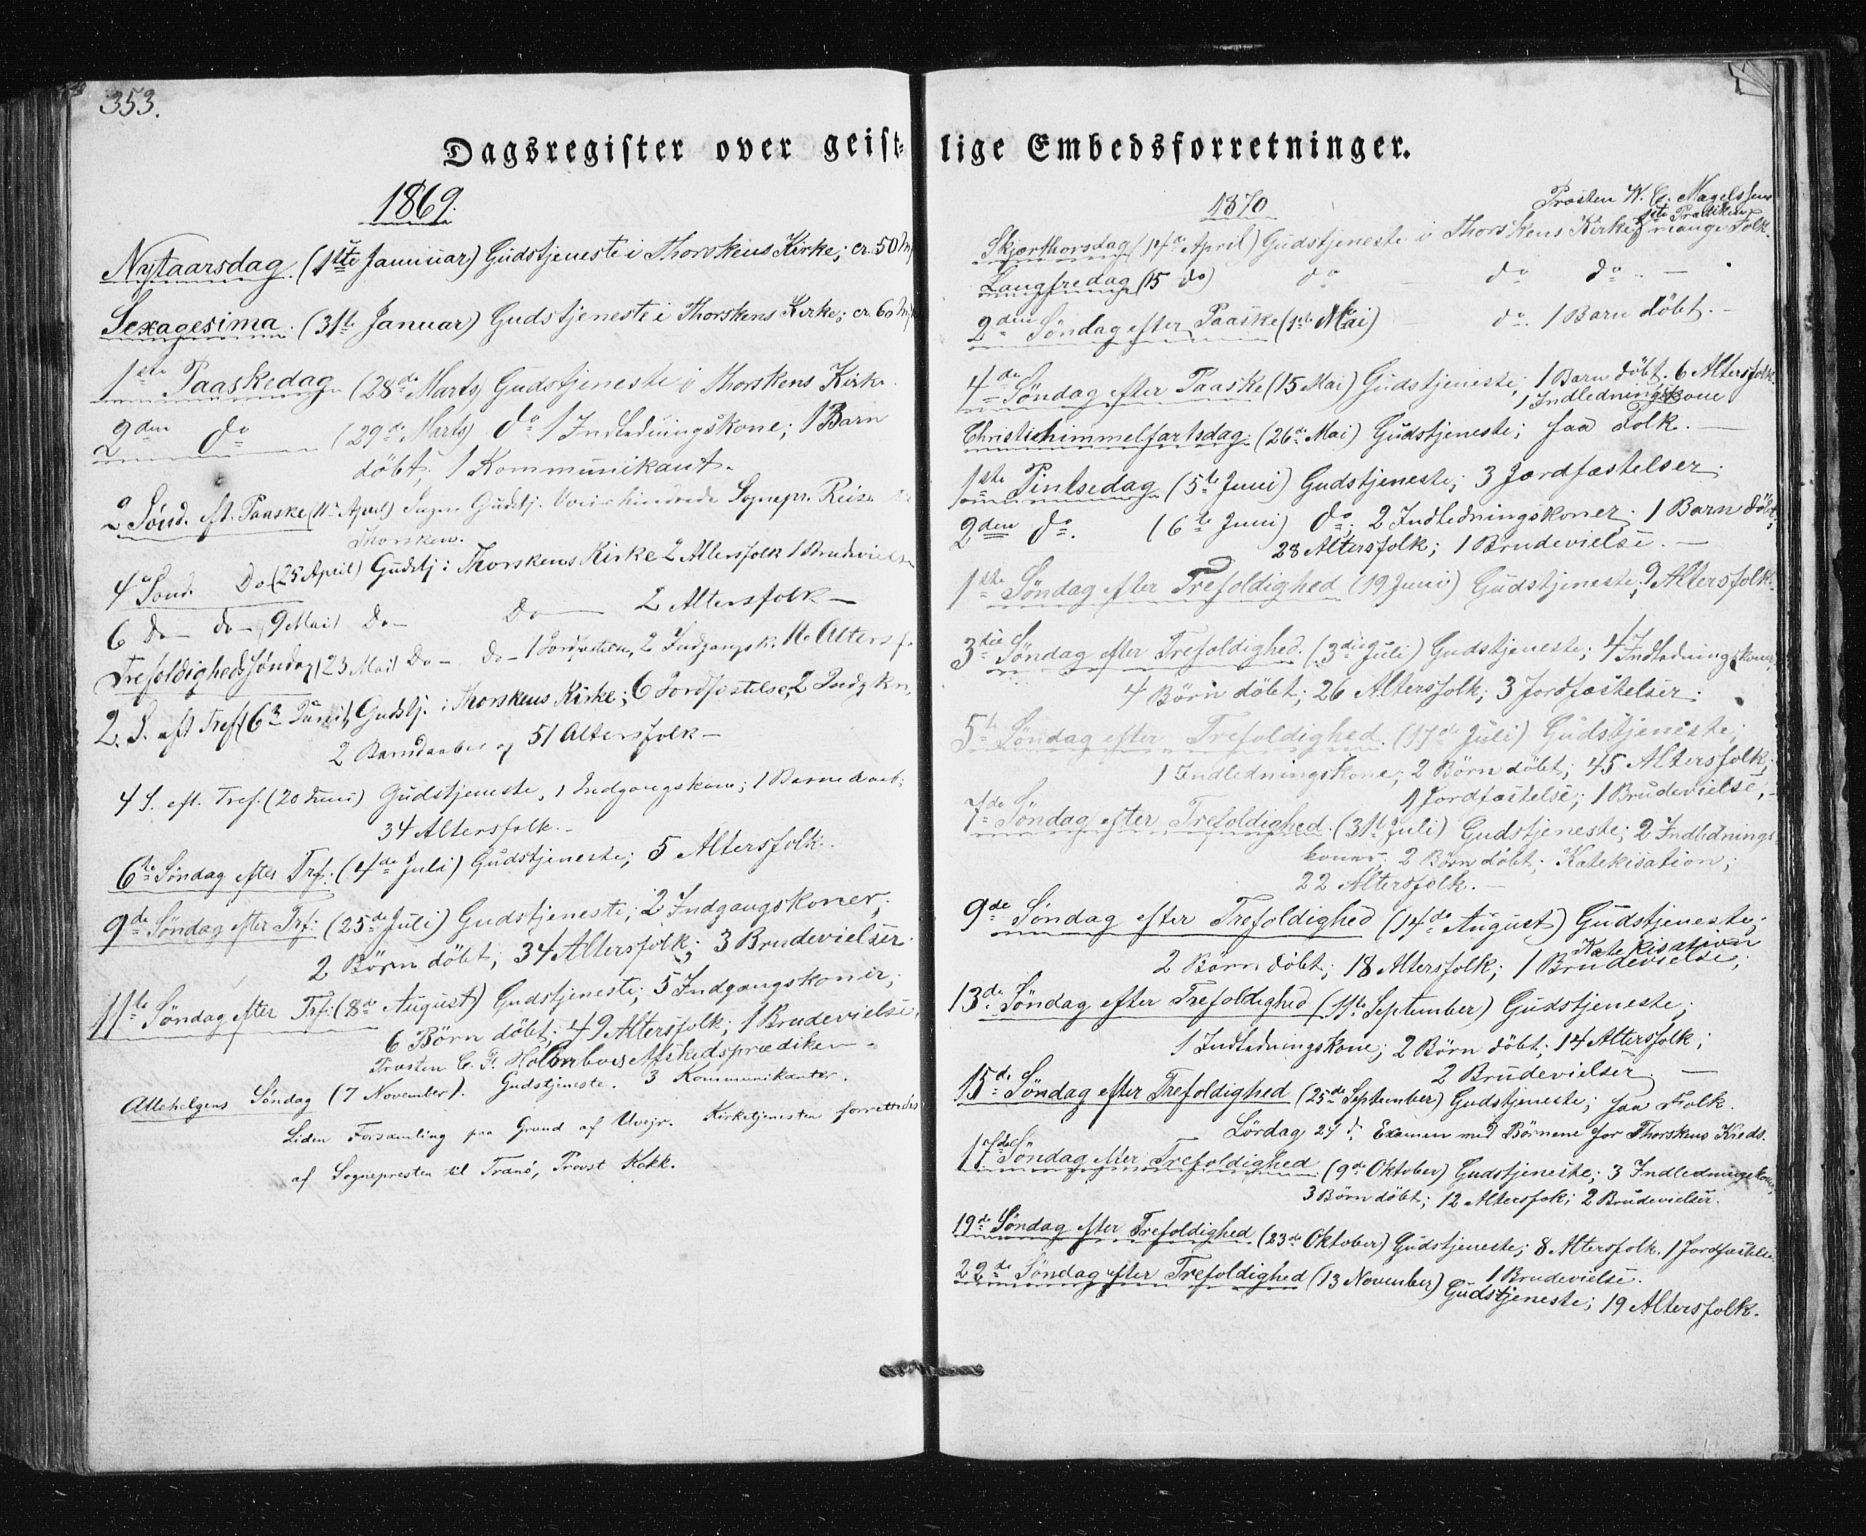 353.
Dagsregister over geist-
lige Embedsforretninger.
1869.
Nytaarsdag. (1ste Januuar) Gudstjeneste i Thorskens Kirke; cr. 50
Sexagesima. (31te Januar) Gudstjeneste i Thorskens Kirke; cr. 60
1ste Paaskedag (28de Marts) Gudstjeneste i Thorskens Kirke.
2den do (29de Marts) do 1 Indledningskone; 1 Barn
döbt; 1 Kommunikant.
2 Sönd. eft. Paaske (11te April) Ingen Gudstj. Veiret hindrede Sognepr. Reise
Thorsken.
4de Sönd. Do (25 April) Gudstj i Thorskens Kirke 2 Altersfolk 1 Brudevielse
6 Do – do – 9 Mai) Do – Do – 2 Altersfolk –
TrefoldighedsSöndag (23 Mai) Do – Do – 1 Jordfæstelse, 2 Indgangsk. 16 Altersf.
2. S. eft Tref (6te Juni) Gudstj. i Thorskens Kirke; 6 Jordfæstelse, 2 Indgkn,
2 Barndaaber og 51 Altersfolk –
4 S. eft. Tref. (20 Juni) Gudstjeneste, 1 Indgangskone; 1 Barnedaab;
34 Altersfolk. –
6te Söndag efter Trf. (4de Juli) Gudstjeneste; 5 Altersfolk.
9de Söndag efter Trf: (25de Juli) Gudstjeneste; 2 Indgangskoner;
2 Börn döbt; 34 Altersfolk; 3 Brudevielser
11te Söndag efter Trf: (8de August) Gudstjeneste; 5 Indgangskoner;
6 Börn döbt; 49 Altersfolk; 1 Brudevielse;
Provsten C. F. Holmboes Afskedsprædiken –
Allehelgens Söndag (7 November). Gudstjeneste. 3 Kommunikanter.
Liden Forsamling paa Grund af Uveir. Kirketjenesten forrettedes
af Sognepresten til Tranö, Provst Kokk.
1870
Provsten W. C. Magelssens
1ste Prædiken
Skjærthorsdag (14de April) Gudstjeneste i Thorskens Kirke; mange Folk.
Langfredag (15 do) do do do. –
2den Söndag efter Paaske (1ste Mai) do. 1 Barn döbt. –
4de Söndag efter Paaske (15 Mai) Gudstjeneste; 1 Barn döbt; 6 Altersfolk
1 Indledningskone
Christihimmelfartsdag (26de Mai) Gudstjeneste; faa Folk. –
1ste Pintsedag (5te Juni) Gudstjeneste; 3 Jordfæstelser.
2den do. (6te Juni) do. 2 Indledningskoner. 1 Barn döbt,
28 Altersfolk; 1 Brudevielse. –
1ste Söndag efter Trefoldighed (19 Juni) Gudstjeneste; 9 Altersfolk.
3die Söndag efter Trefoldighed. (3die Juli) Gudstjeneste; 4 Indledningskoner,
4 Börn döbt; 26 Altersfolk; 3 Jordfæstelser.
5te Söndag efter Trefoldighed. (17de Juli) Gudstjeneste;
1 Indledningskone; 2 Börn döbt; 45 Altersfolk;
1 Jordfæstelse; 1 Brudevielse, –
7de Söndag efter Trefoldighed. (31te Juli) Gudstjeneste; 2 Indlednings
koner; 2 Börn döbt; Katekisation;
22 Altersfolk. –
9de Söndag efter Trefoldighed (14de August) Gudstjeneste;
Katekisation
2 Börn döbt; 18 Altersfolk; 1 Brudevielse;
13de Söndag efter Trefoldighed (11te September) Gudstjeneste;
1 Indledningskone; 2 Börn döbt; 14 Altersfolk;
2 Brudevielser. –
15de Söndag efter Trefoldighed (25de September) Gudstjeneste; faa Folk.
Lördag 24 d. Examen med Börnene for Thorskens Kreds.
17de Söndag efter Trefoldighed (9de Oktober) Gudstjeneste; 3 Indledningskoner,
3 Börn döbt; 12 Altersfolk; 2 Brudevielser.
19de Söndag efter Trefoldighed (23de Oktober) Gudstjeneste; 8 Altersfolk. 1 Jordfæstelse
1 Brudevielse.
22de Söndag efter Trefoldighed (13 November) Gudstjeneste; 19 Altersfolk.